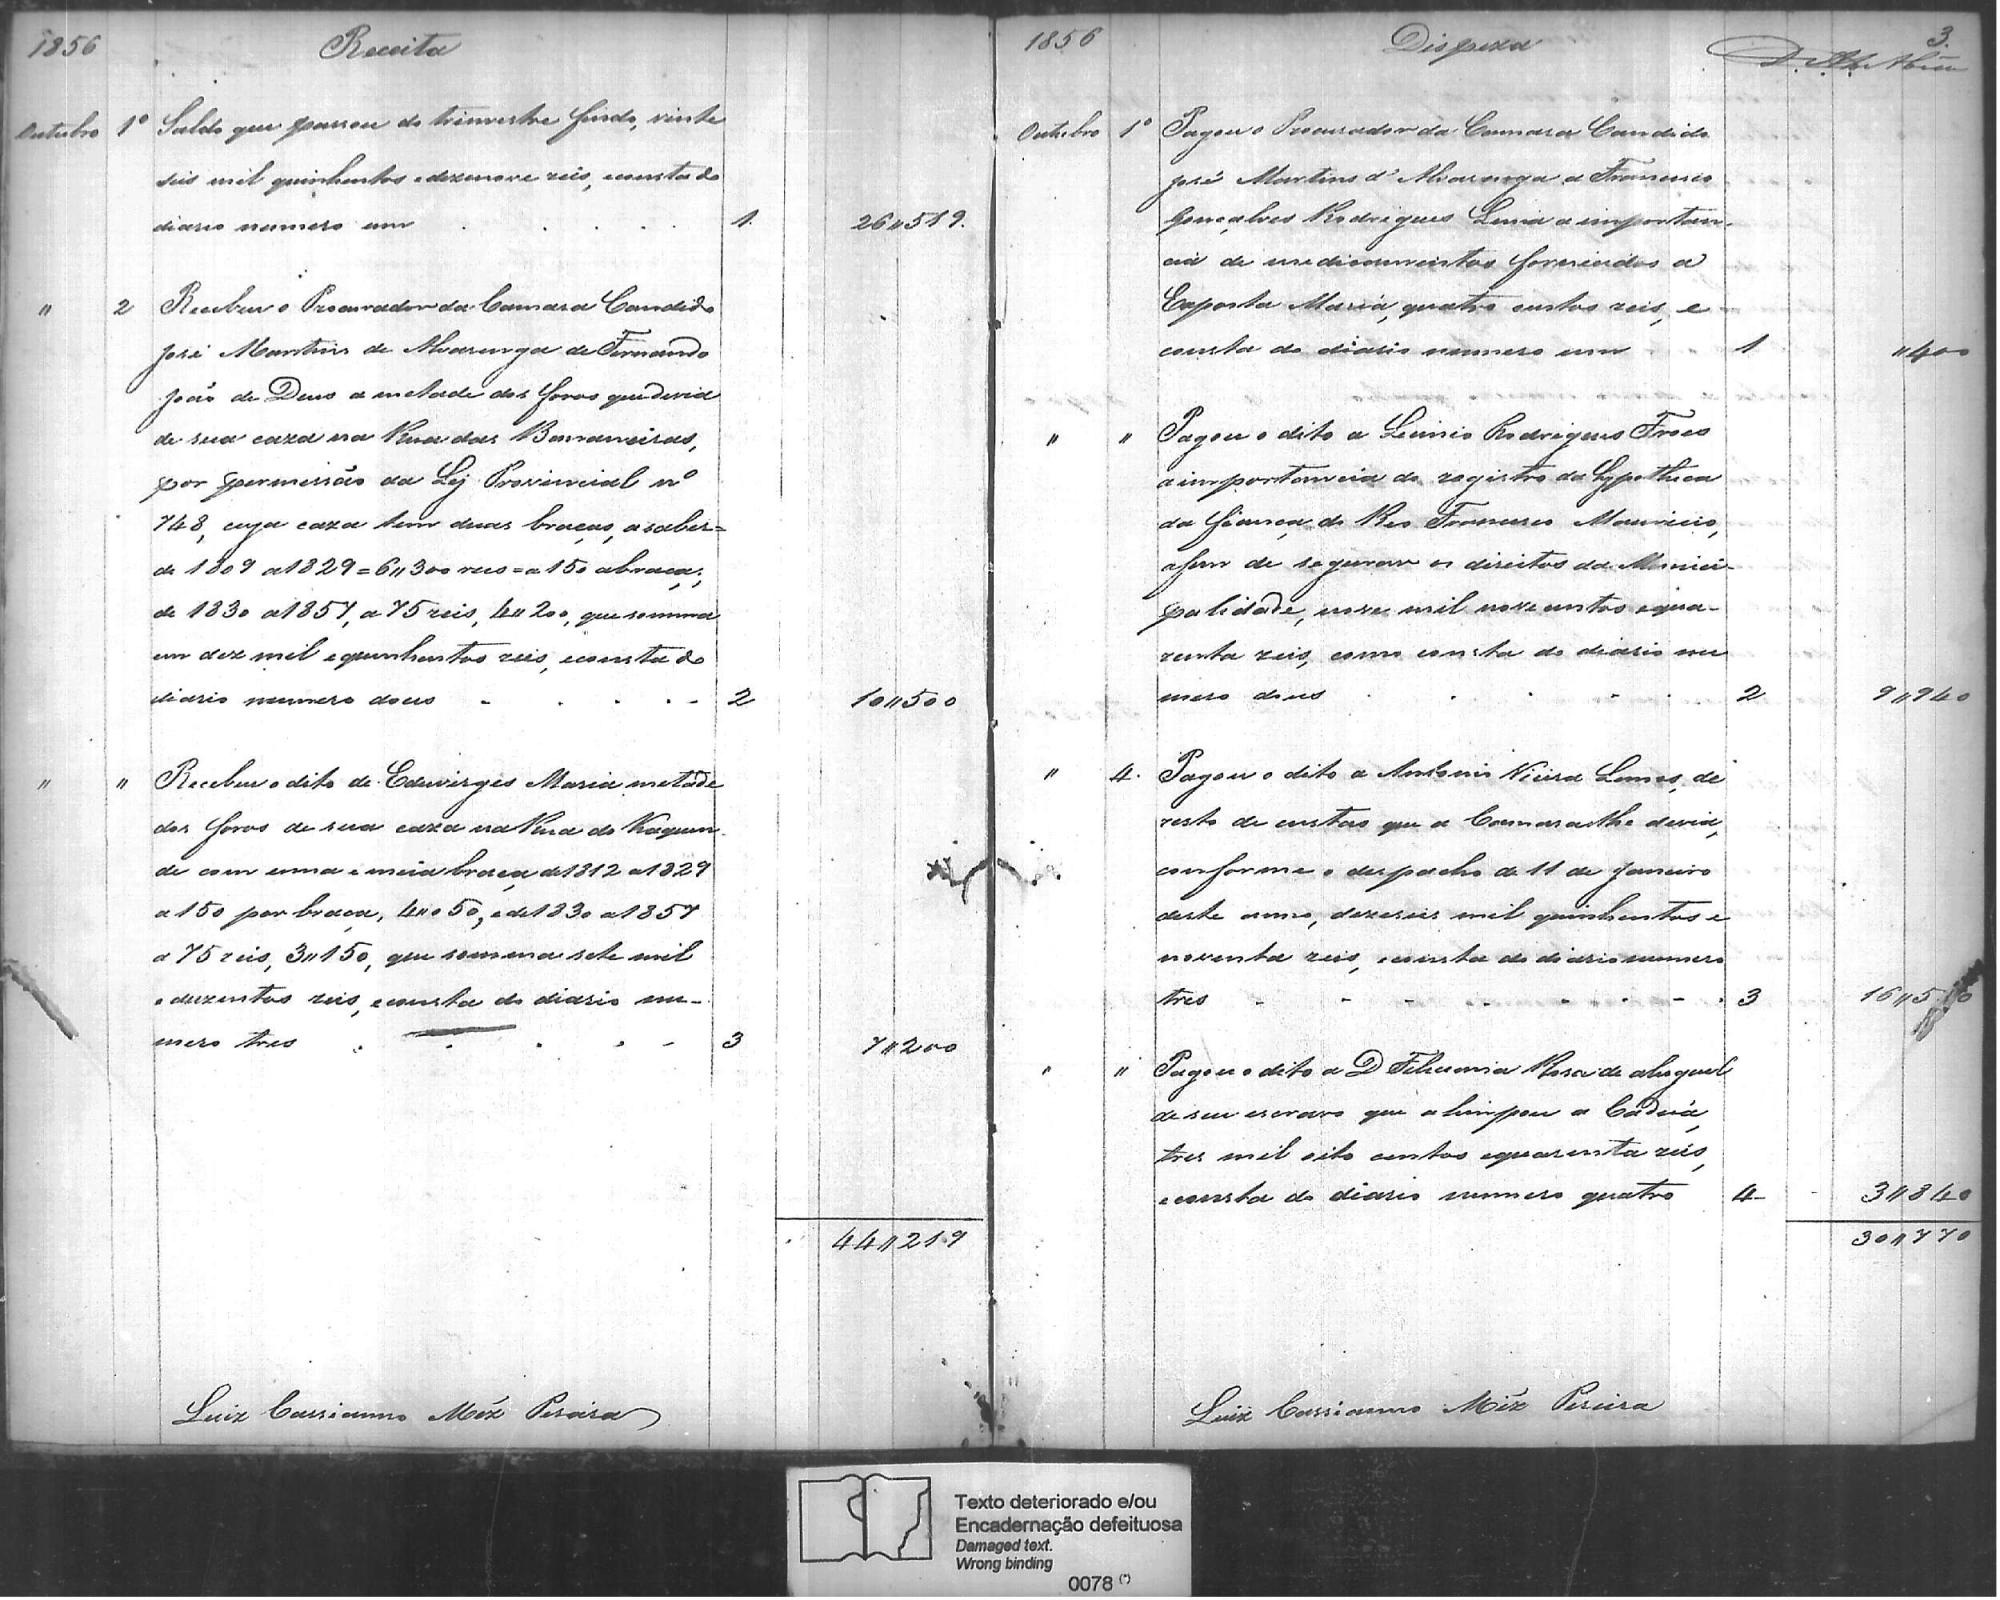 1856 Receita
Outubro 1º Saldo que passou do trimestre findo, vinte
seis mil quinhentos e dezenove reis, consta do
diario numero um . . . . . 1. 26〃519.
〃 2 Recebeu o Procurador da Camara Candido
José Martins de Alvarenga de Fernando
João de Deus a metade dos foros que devia
de sua caza na Rua das Bananeiras,
por permissão da Lej Provincial nº
748, cuja caza tem duas braças, a saber =
de 1809 a 1829 = 6〃300 reis = a 150 a braça;
de 1830 a 1857, a 75 reis, 4〃200, que somma
em dez mil e quinhentos reis, e consta do
diario numero dous - . . . - 2 10〃500
〃 〃 Recebeu o dito de Eduvirges Maria metade
dos foros de sua caza na Rua do Kaquen
de com uma e meia braça de 1812 a 1829
a 150 por braça, 4〃050, e de 1830 a 1857
a 75 reis, 3〃150, que somma sete mil
e duzentos reis, e consta do diario nu-
mero tres . . . . - 3 7〃200
44〃219
Luiz Cassianno Miz Pereira
1856 Dispeza 3.
Outubro 1º Pagou o Procurador da Camara Candido
José Martins d'Alvarenga a Francisco
Gonçalves Rodrigues Lima a importan-
cia de medicamentos fornecidos a
Exposta Maria, quatro centos reis, e
consta do diario numero um 1 〃400
〃 〃 Pagou o dito a Licinio Rodrigues Froes
a importancia do registro da hypotheca
da fiança do Reo Francisco Mauricio,
afim de segurar os direitos da Munici-
palidade, nove mil nove centos e qua-
renta reis, como consta do diario nu
mero dous . . . . . 2 9〃940
〃 4. Pagou o dito a Antonio Vieira Lemos, de
resto de custas que a Camara lhe devia,
conforme o despacho de 11 de Janeiro
deste anno, dezeseis mil quinhentos e
noventa reis, e consta do diario numero
tres - - - . . . - . 3 16〃590
〃 〃 Pagou o dito a D Felicianna Rosa de aluguel
de seu escravo que alimpou a Cadeia,
tres mil oito centos e quarenta reis,
e consta do diario numero quatro 4 - 3〃840
30〃770
Luiz Cassianno Miz Pereira
Texto deteriorado e/ou
Encadernação defeituosa
Damaged text.
Wrong binding
0078 (*)